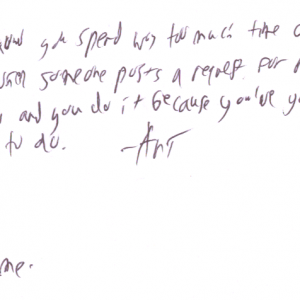 you spend way too much time
someone posts a request for
and you do it because you've
to do.
-Art
me.